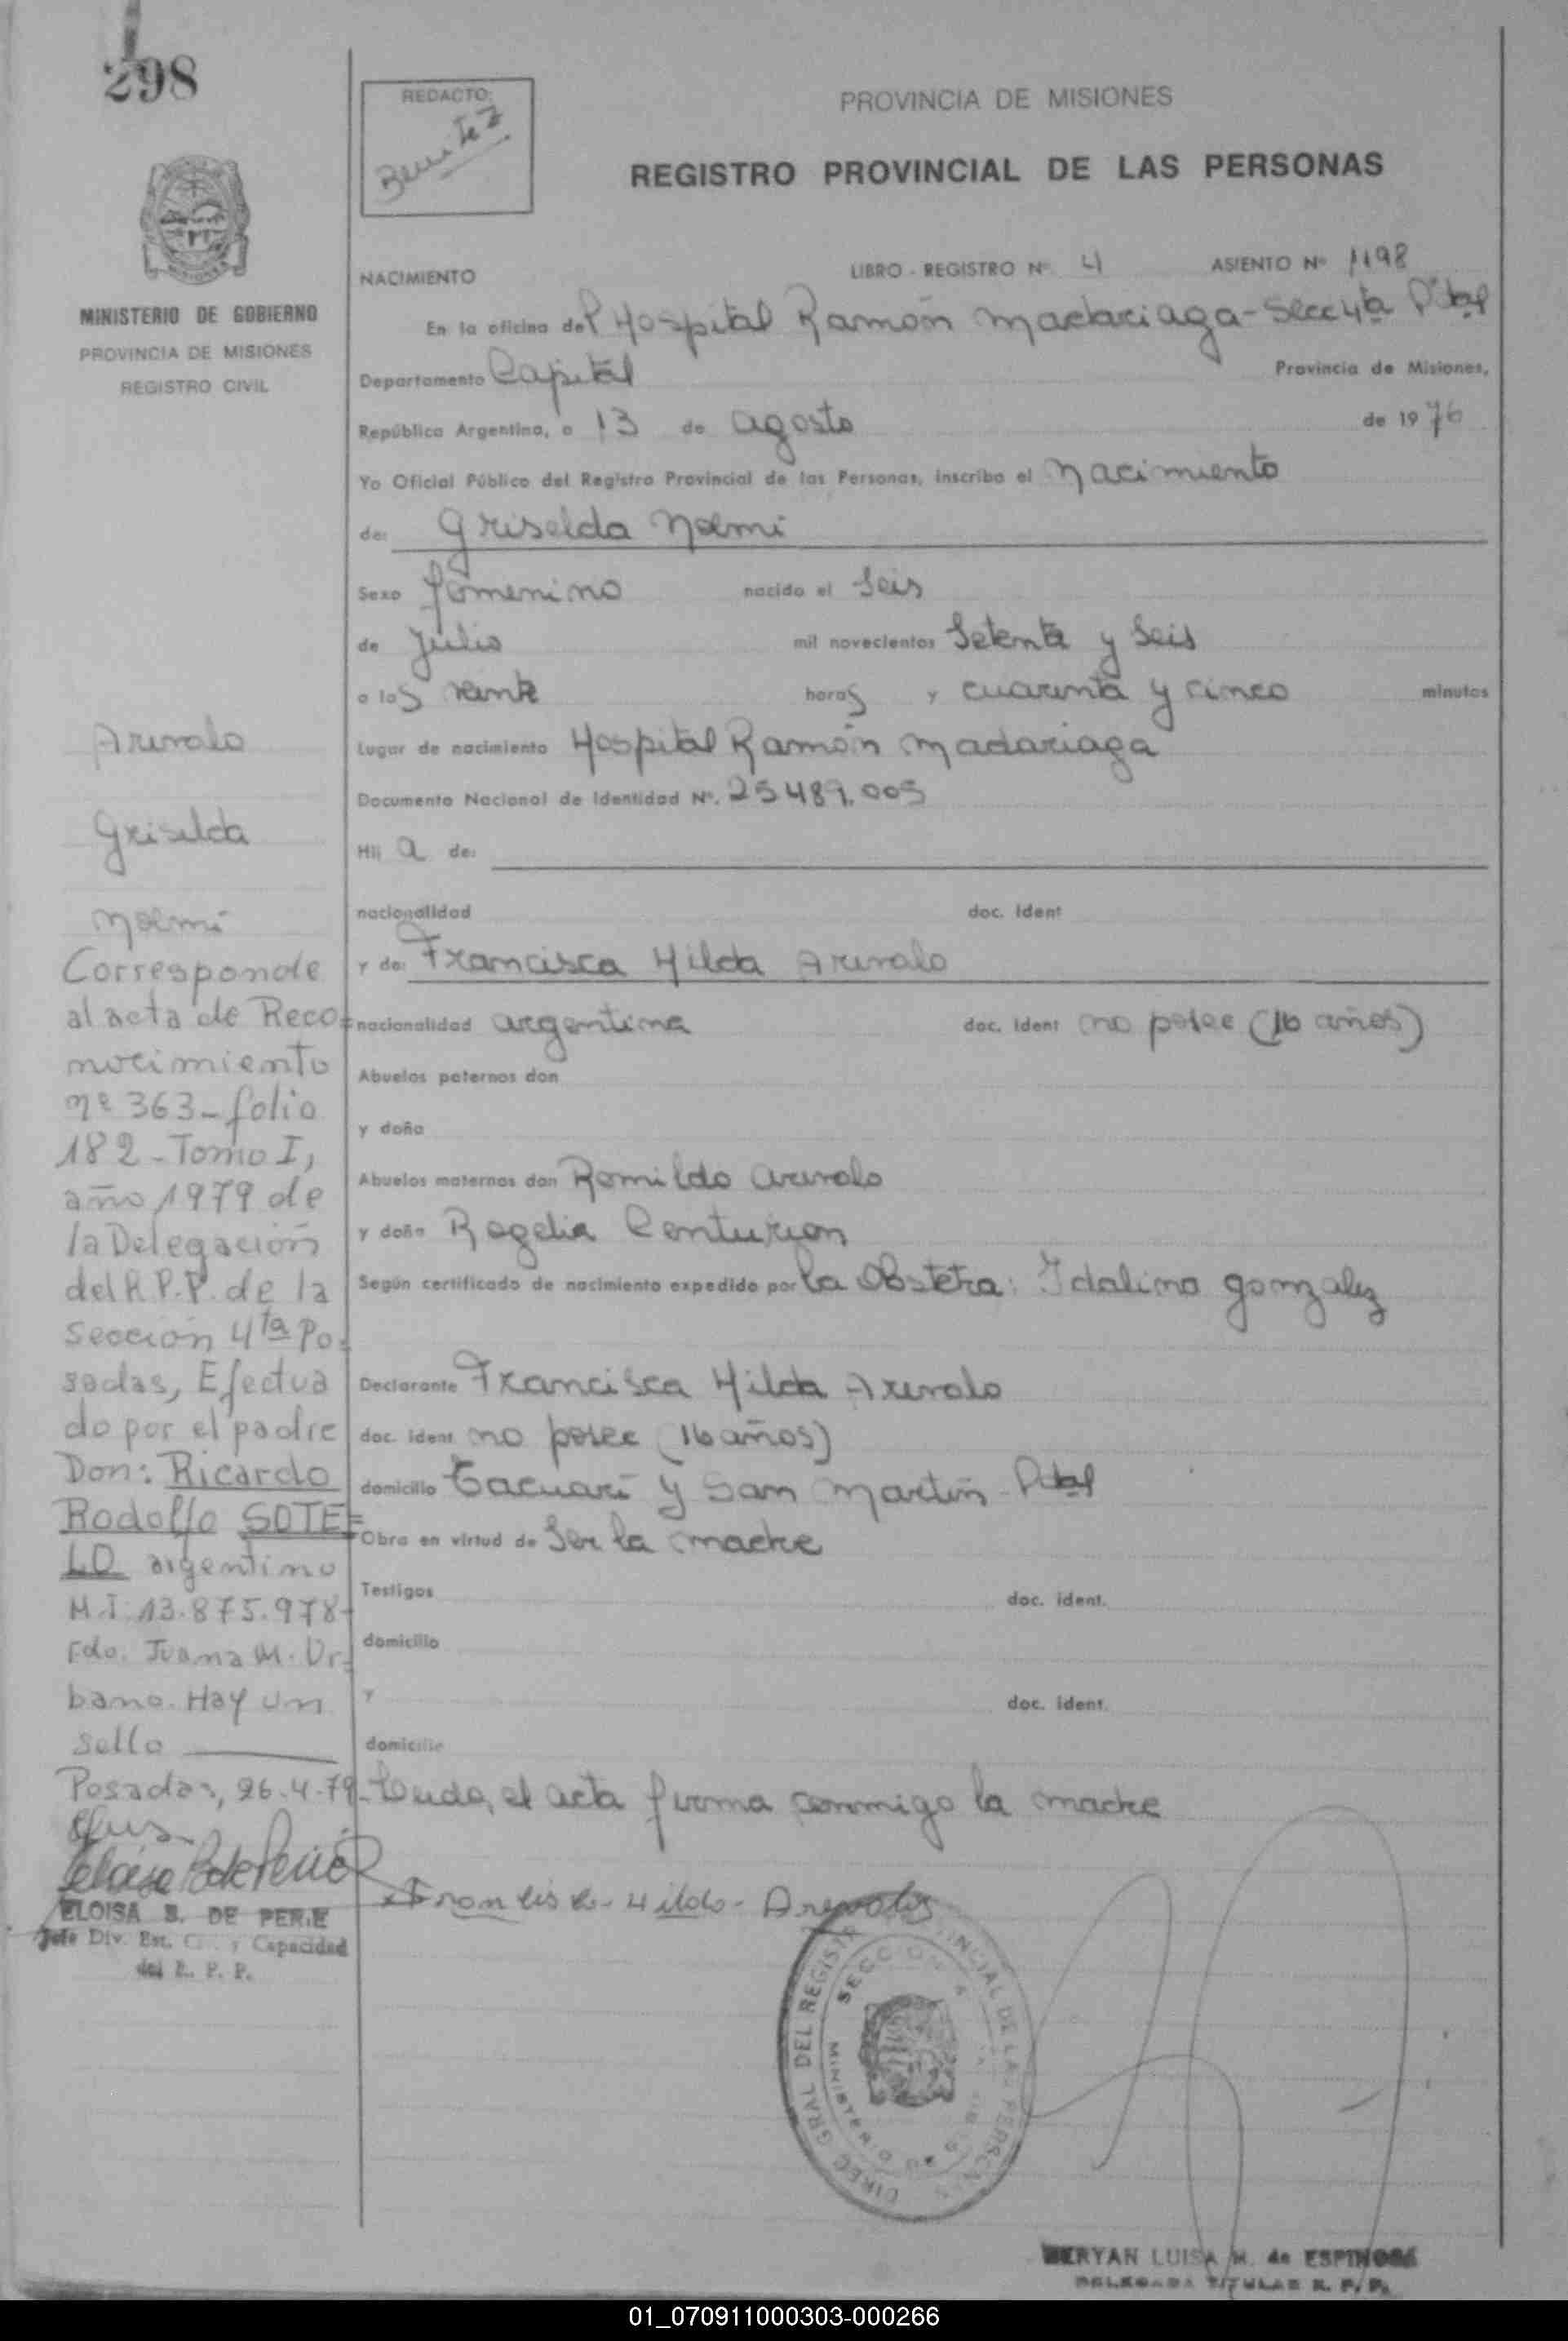 298
REDACTO:
Benitez
PROVINCIA DE MISIONES
REGISTRO PROVINCIAL DE LAS PERSONAS
MINISTERIO DE GOBIERNO
PROVINCIA DE MISIONES
REGISTRO CIVIL
NACIMIENTO LIBRO - REGISTRO Nº 4 ASIENTO Nº 1198
En la oficina del Hospital Ramón Madariaga - Secc 4ta Pdas
Departamento Capital Provincia de Misiones,
República Argentina, a 13 de agosto de 1976
Yo Oficial Público del Registro Provincial de las Personas, inscribo el Nacimiento
de: Griselda Noemi
Sexo femenino nacido el Seis
de Julio mil novecientos Setenta y Seis
a las veinte horas y cuarenta y cinco minutos
Lugar de nacimiento Hospital Ramón Madariaga
Documento Nacional de Identidad Nº. 25.489.005
Hij a de:
nacionalidad doc. ident
y de: Francisca Hilda Arevalo
nacionalidad argentina doc. ident no posee (16 años)
Abuelos paternos don
y doña
Abuelos maternos don Romildo Arevalo
y doña Rogelia Centurion
Según certificado de nacimiento expedido por la Obstetra: Idalina Gonzalez
Declarante Francisca Hilda Arevalo
doc. ident no posee (16 años)
domicilio Tacuarí y San Martín - Pdas
Obra en virtud de Ser la madre
Testigos doc. ident.
domicilio
y doc. ident.
domicilio
Leida, el acta firma conmigo la madre
Francisca - Hilda - Arevalo
Arevalo
Griselda
Noemi
Corresponde
al acta de Reco=
nocimiento
nº 363 - folio
182 - Tomo I,
año 1979 de
la Delegación
del R.P.P. de la
sección 4ta Po=
sadas, Efectua
do por el padre
Don: Ricardo
Rodolfo SOTE=
LO argentino
M.I. 13.875.978-
Fdo. Juana M. Ur=
bano. Hay un
sello
Posadas, 26-4-79-
ELOISA B. DE PERIE
Jefe Div. Est. C. y Capacidad
del R. P. P.
DIREC GRAL DEL REGISTRO PROVINCIAL DE LAS PERSONAS
MINISTERIO
MERYAN LUISA M. de ESPINOSA
DELEGADA TITULAR R. P. P.
01_070911000303-000266